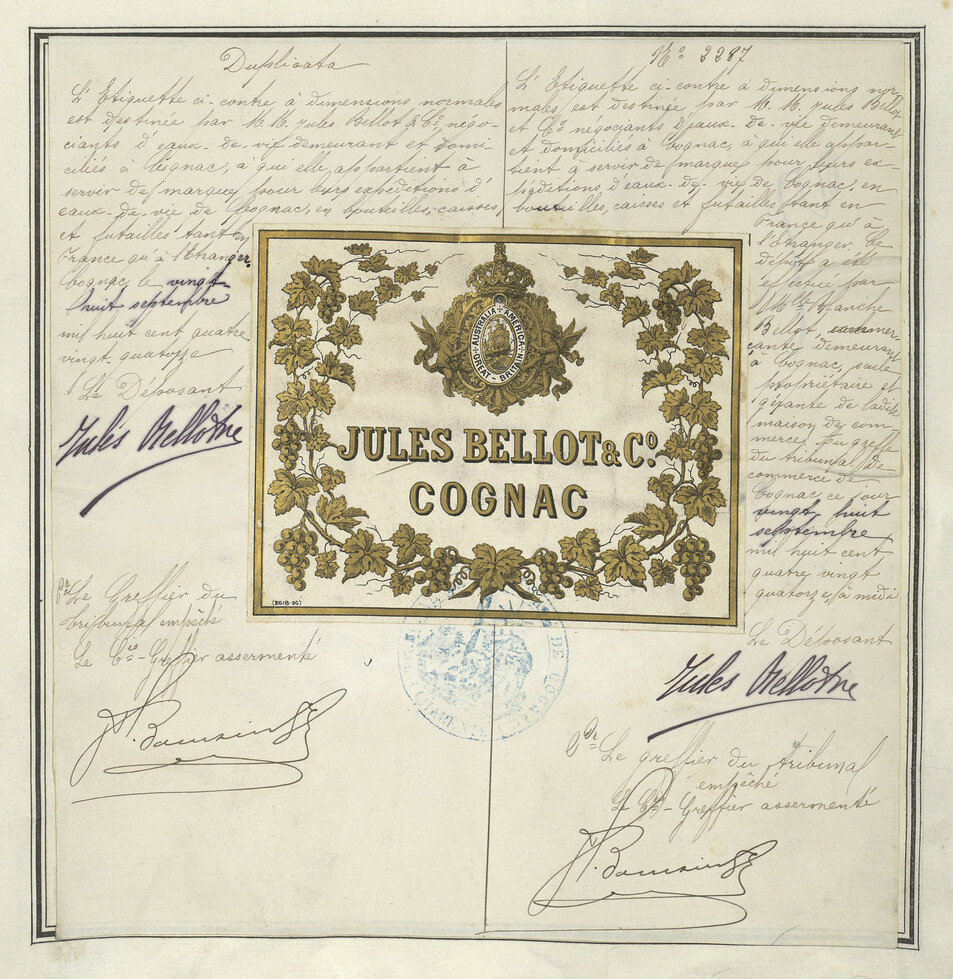 Duplicata
L'Etiquette ci-contre à dimensions normales
est destinée par M.M. Jules Bellot & Cº, négo-
ciants d'eaux-de-vie demeurant et domi-
ciliés à Cognac, a qui elle appartient à
servir de marque pour leurs expéditions d'
eaux-de-vie de Cognac, en bouteilles, caisses,
et futailles tant en
France qu'à l'Etranger.
Cognac, le vingt
huit septembre
mil huit cent quatre
vingt quatorze
Le Déposant
Jules Bellot & Cie
Pr Le Greffier du
tribunal empêché
Le Cis-Greffier assermenté
Nº 2287
L'Etiquette ci-contre à dimensions nor-
males, est destinée par M.M. Jules Bellot
et Cº négociants d'eaux-de-vie demeurant
et domiciliés à Cognac, a qui elle appar-
tient à servir de marque pour leurs ex-
péditions d'eaux-de-vie de Cognac, en
bouteilles, caisses et futailles tant en
France qu'à
l'Etranger. Le
dépôt a été
effectué par
Mlle Blanche
Bellot, commer-
çante demeurant
à Cognac, seule
propriétaire et
gérante de ladite
maison de com-
merce, Au greffe
du tribunal de
commerce de
Cognac ce jour
vingt huit
septembre
mil huit cent
quatre vingt
quatorze, à midi
Le Déposant
Jules Bellot & Cie
Pr Le greffier du tribunal
empêché
Le Cis-Greffier assermenté
AUSTRALIA AMERICA
GREAT BRITAIN
JULES BELLOT & Cº.
COGNAC
(2618-90)
DE COGNAC